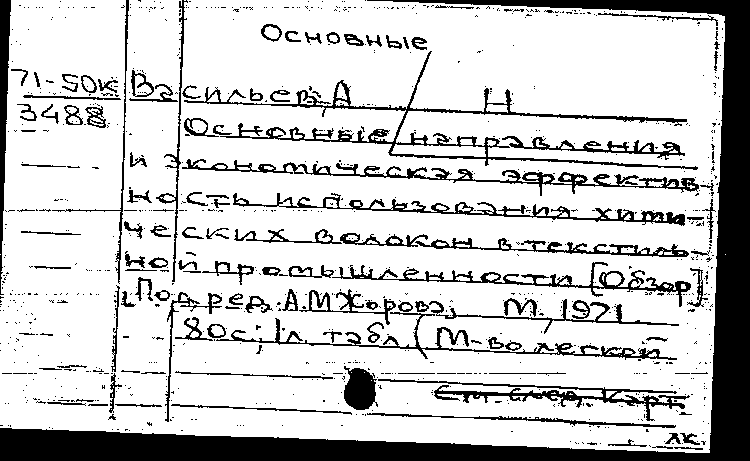 Основные
71-50к Васильев, А Н
3488 Основные направления
и экономическая эффектив-
ность использования хими-
ческих волокон в текстиль-
ной промышленности [Обзор]
Под ред. А.М Жорова, М, 1971
80с; 1л. табл (М-во легкой
См. след. карт.
лк.